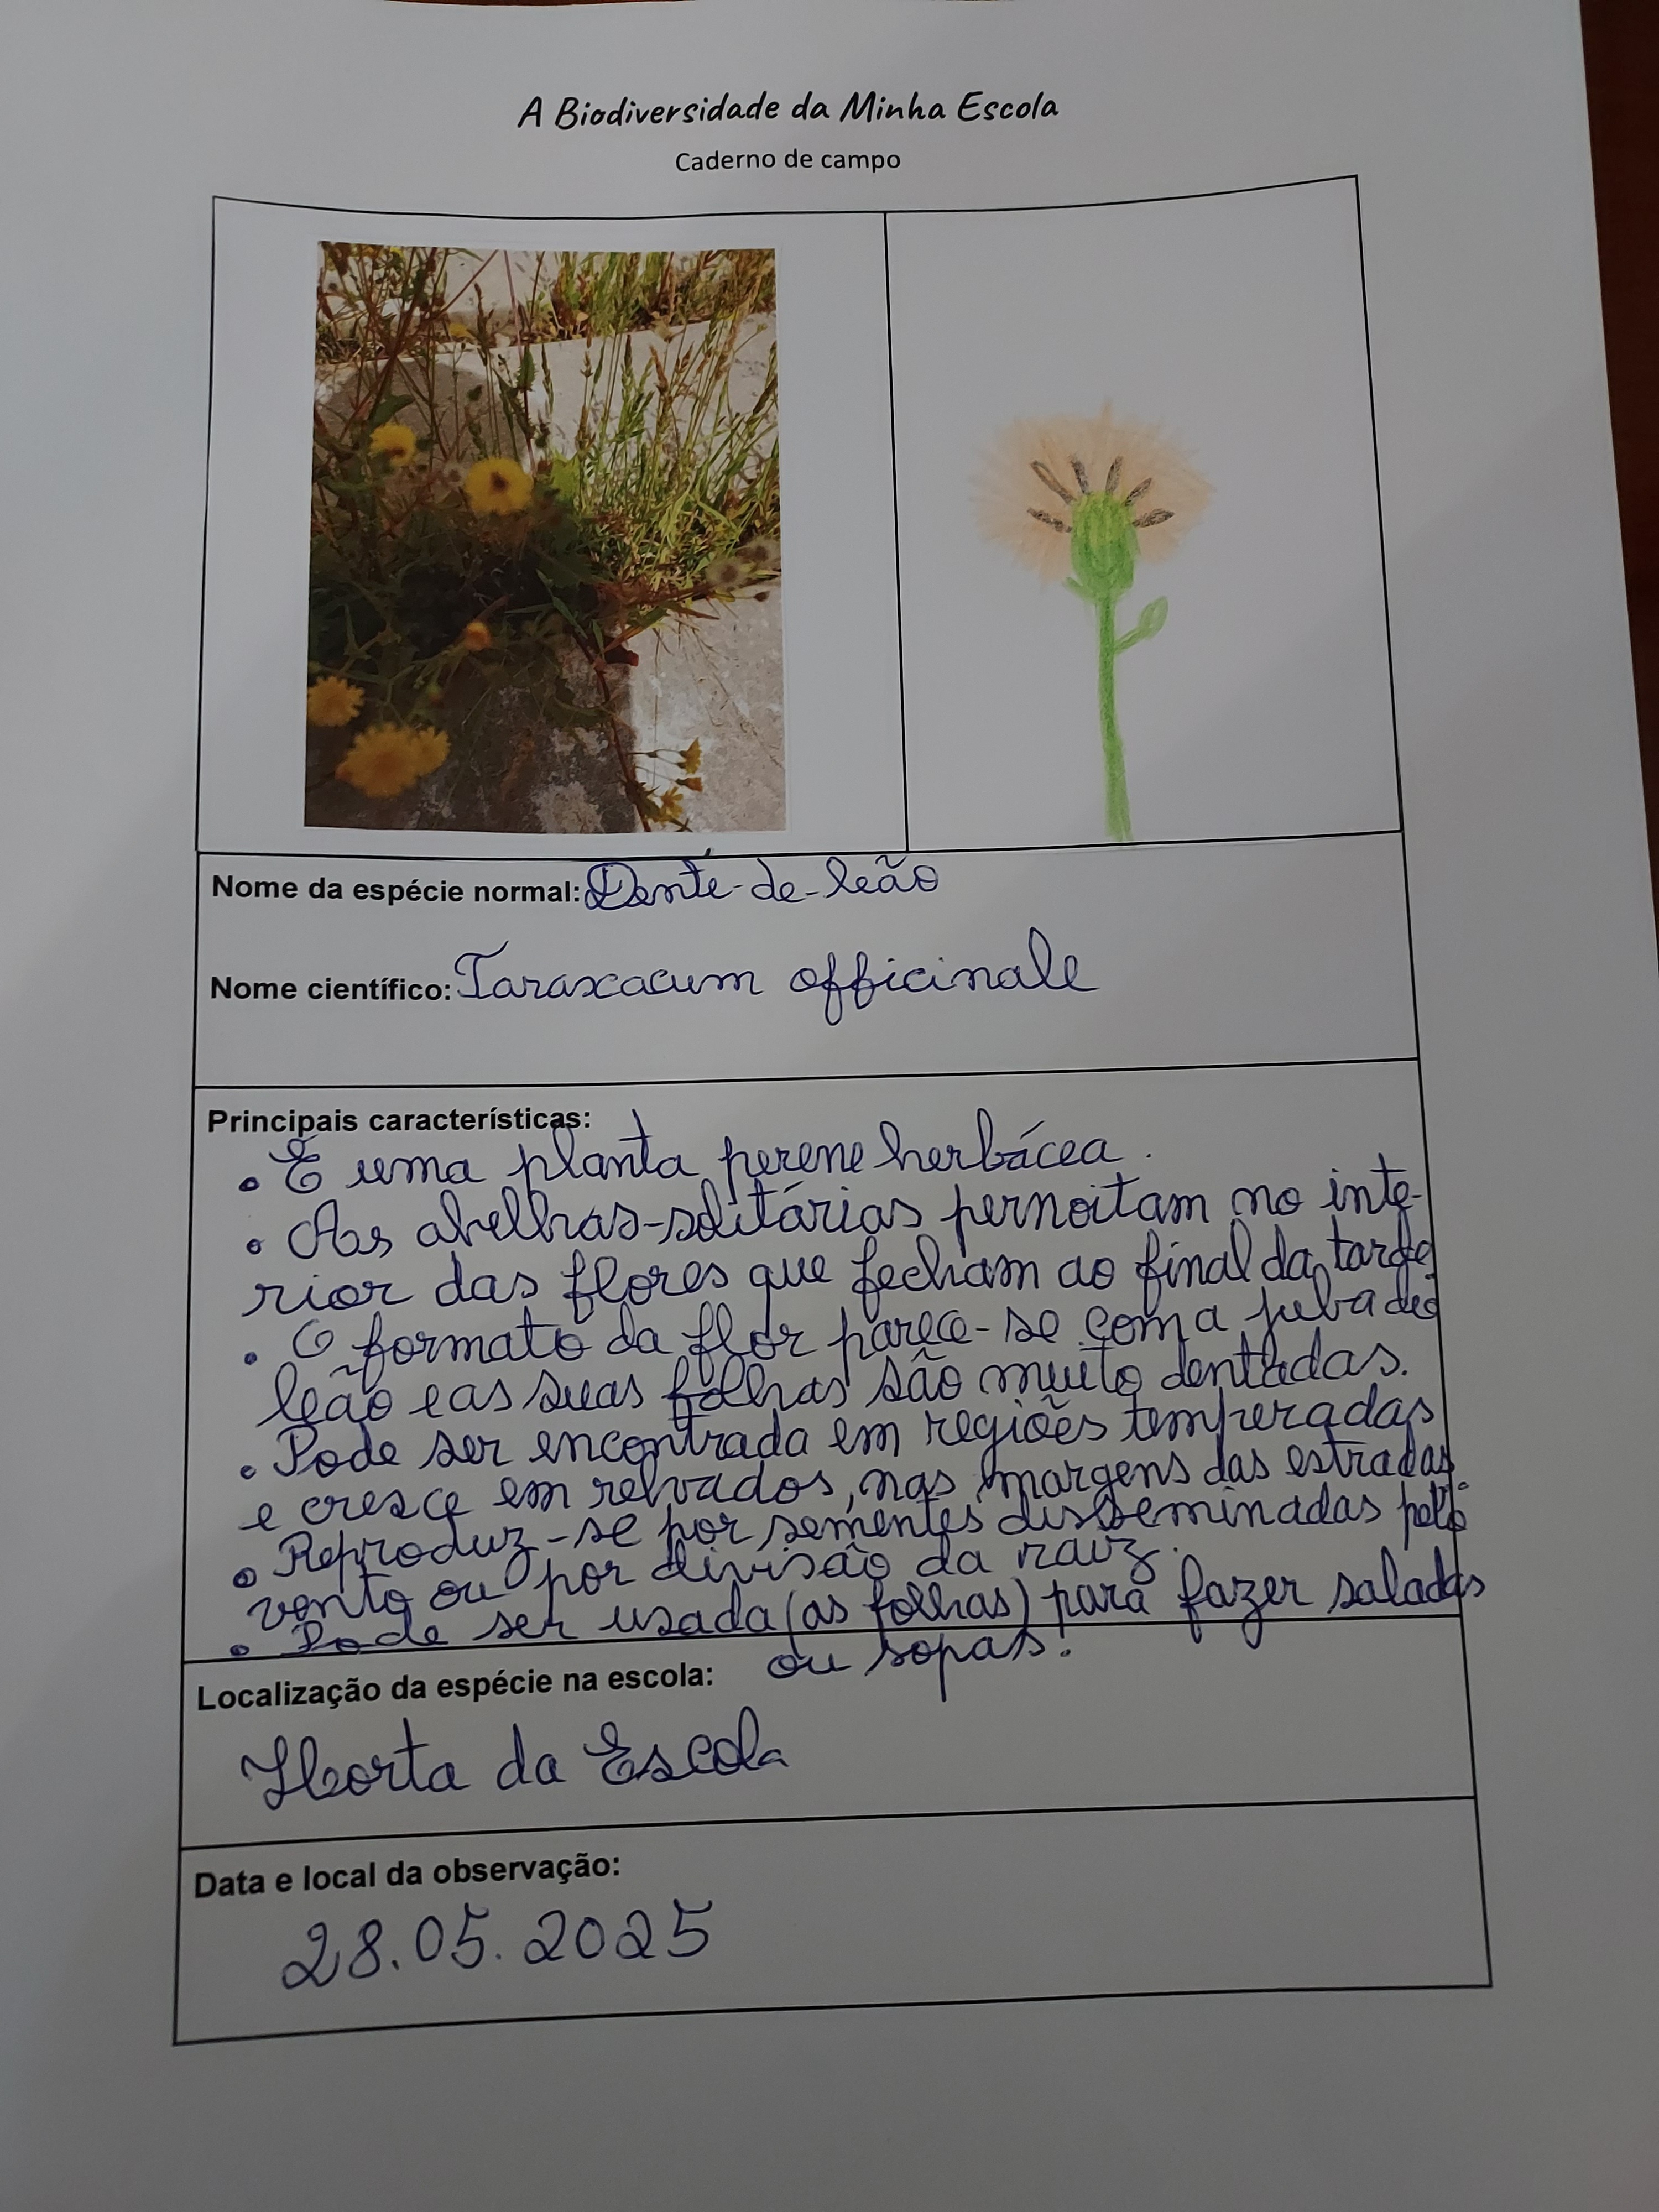 A Biodiversidade da Minha Escola
Caderno de campo
Nome da espécie normal: Dente-de-leão
Nome científico: Taraxacum officinale
Principais características:
• É uma planta perene herbácea.
• As abelhas-solitárias pernoitam no inte-
rior das flores que fecham ao final da tarde
• O formato da flor parece-se com a juba de
leão e as suas folhas são muito dentadas.
• Pode ser encontrada em regiões temperadas
e cresce em relvados, nas margens das estradas.
• Reproduz-se por sementes disseminadas pelo
vento ou por divisão da raiz.
• Pode ser usada (as folhas) para fazer saladas
ou sopas.
Localização da espécie na escola:
Horta da Escola
Data e local da observação:
28.05.2025